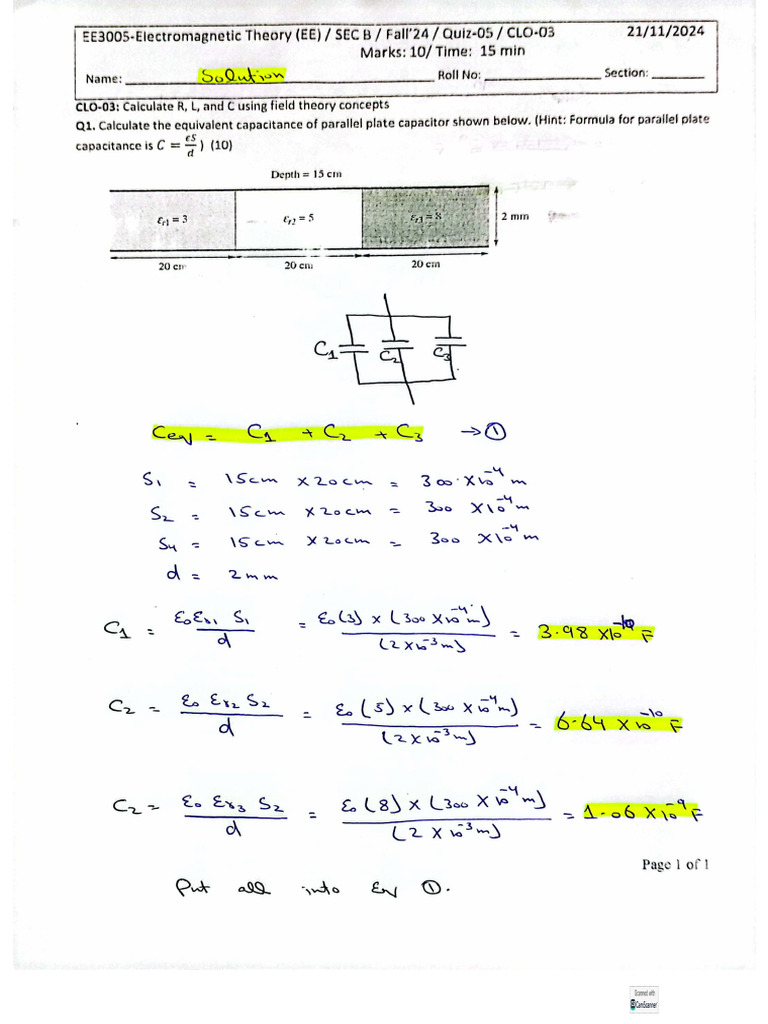 EE3005-Electromagnetic Theory (EE) / SEC B / Fall'24 / Quiz-05 / CLO-03 21/11/2024
Marks: 10/ Time: 15 min
Name: Solution Roll No: Section:
CLO-03: Calculate R, L, and C using field theory concepts
Q1. Calculate the equivalent capacitance of parallel plate capacitor shown below. (Hint: Formula for parallel plate
capacitance is C = εS/d ) (10)
Depth = 15 cm
εr1 = 3 εr2 = 5 εr3 = 8 2 mm
20 cm 20 cm 20 cm
C1 C2 C3
Ceq = C1 + C2 + C3 → ①
S1 = 15cm × 20cm = 300 × 10^-4 m
S2 = 15cm × 20cm = 300 × 10^-4 m
S4 = 15cm × 20cm = 300 × 10^-4 m
d = 2mm
C1 = ε0 εr1 S1 / d = ε0 (3) × (300 × 10^-4 m) / (2 × 10^-3 m) = 3.98 × 10^-10 F
C2 = ε0 εr2 S2 / d = ε0 (5) × (300 × 10^-4 m) / (2 × 10^-3 m) = 6.64 × 10^-10 F
C2 = ε0 εr3 S2 / d = ε0 (8) × (300 × 10^-4 m) / (2 × 10^-3 m) = 1.06 × 10^-9 F
Page 1 of 1
Put all into Eq ①.
Scanned with
CamScanner